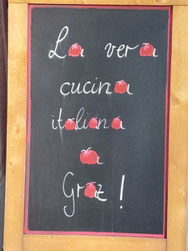 La vera
cucina
italiana
a
Graz!